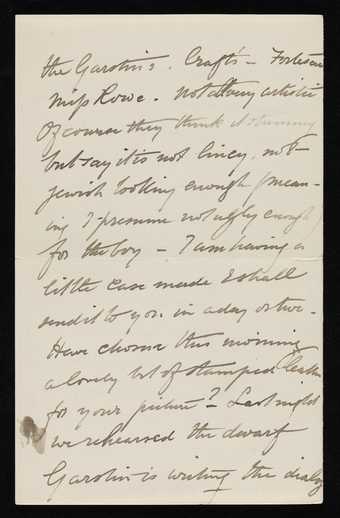 the Garstins. Craft's - Fortescue
Miss Rowe. not a very artistic
Of course they think it stunning
but say it is not Lincy, not
Jewish looking enough (mean-
ing I presume not ugly enough)
for the boy - I am having a
little case made & shall
send it to you in a day or two.
Have chosen this morning
a lovely bit of stamped leather
for your picture? - Last night
we rehearsed the dwarf
Garstin is writing the dialog